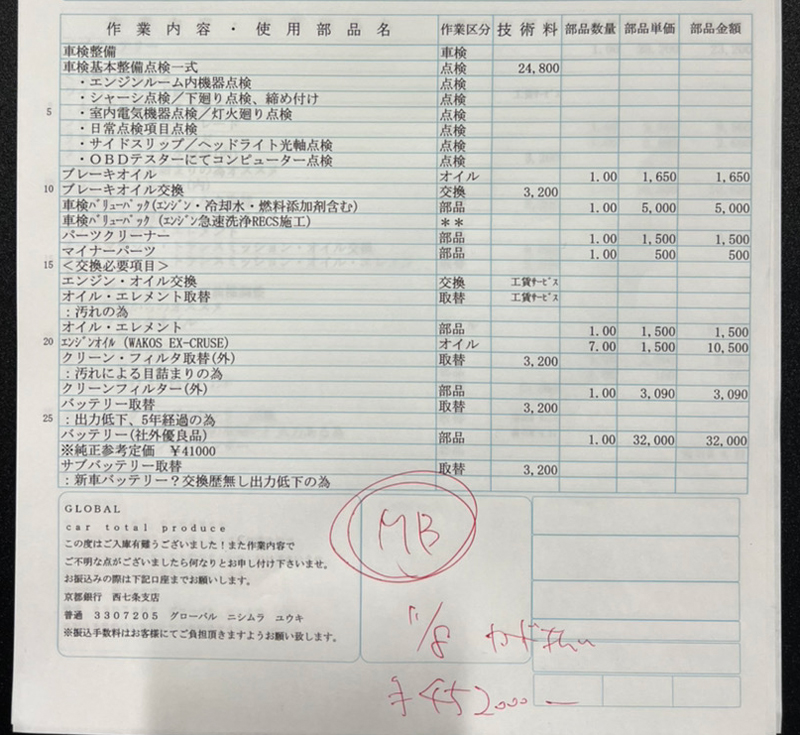 作業内容・使用部品名 作業区分 技術料 部品数量 部品単価 部品金額
車検整備 車検
車検基本整備点検一式 点検 24,800
・エンジンルーム内機器点検 点検
・シャーシ点検／下廻り点検、締め付け 点検
5 ・室内電気機器点検／灯火廻り点検 点検
・日常点検項目点検 点検
・サイドスリップ／ヘッドライト光軸点検 点検
・ＯＢＤテスターにてコンピューター点検 点検
ブレーキオイル オイル 1.00 1,650 1,650
10 ブレーキオイル交換 交換 3,200
車検ﾊﾞﾘｭｰﾊﾟｯｸ(ｴﾝｼﾞﾝ・冷却水・燃料添加剤含む) 部品 1.00 5,000 5,000
車検ﾊﾞﾘｭｰﾊﾟｯｸ (ｴﾝｼﾞﾝ急速洗浄RECS施工) ＊＊
パーツクリーナー 部品 1.00 1,500 1,500
マイナーパーツ 部品 1.00 500 500
15 ＜交換必要項目＞
エンジン・オイル交換 交換 工賃ｻｰﾋﾞｽ
オイル・エレメント取替 取替 工賃ｻｰﾋﾞｽ
：汚れの為
オイル・エレメント 部品 1.00 1,500 1,500
20 ｴﾝｼﾞﾝｵｲﾙ (WAKOS EX-CRUSE) オイル 7.00 1,500 10,500
クリーン・フィルタ取替(外) 取替 3,200
：汚れによる目詰まりの為
クリーンフィルター(外) 部品 1.00 3,090 3,090
バッテリー取替 取替 3,200
25 ：出力低下、5年経過の為
バッテリー(社外優良品) 部品 1.00 32,000 32,000
※純正参考定価 ￥41000
サブバッテリー取替 取替 3,200
：新車バッテリー？交換歴無し出力低下の為
GLOBAL
car total produce
この度はご入庫有難うございました！また作業内容で
ご不明な点がございましたら何なりとお申し付け下さいませ。
お振込みの際は下記口座までお願いします。
京都銀行 西七条支店
普通 3307205 グローバル ニシムラ ユウキ
※振込手数料はお客様にてご負担頂きますようお願い致します。
MB
11/8